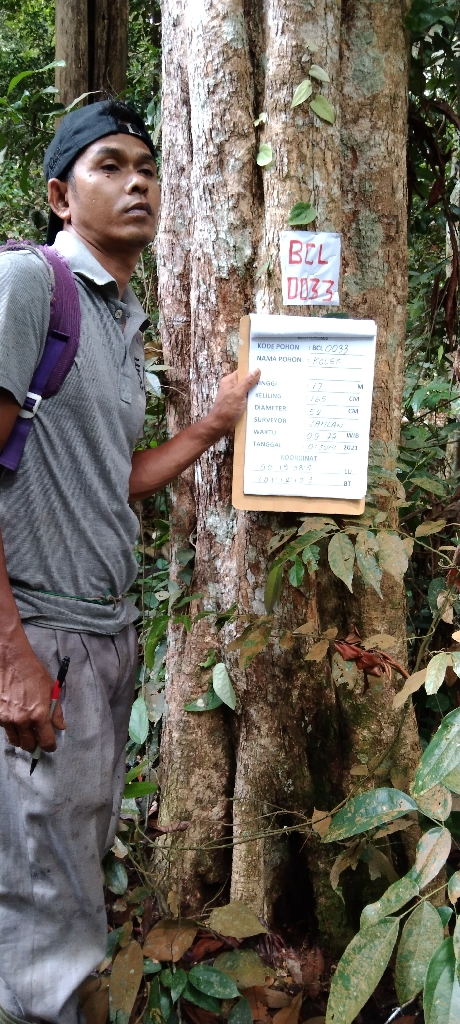 BCL
0033
KODE POHON : BCL 0033
NAMA POHON : KOLEP
TINGGI 17 M
KELILING 165 CM
DIAMETER 52 CM
SURVEYOR
WAKTU 09 22 WIB
TANGGAL 2021
KOORDINAT
LU
BT